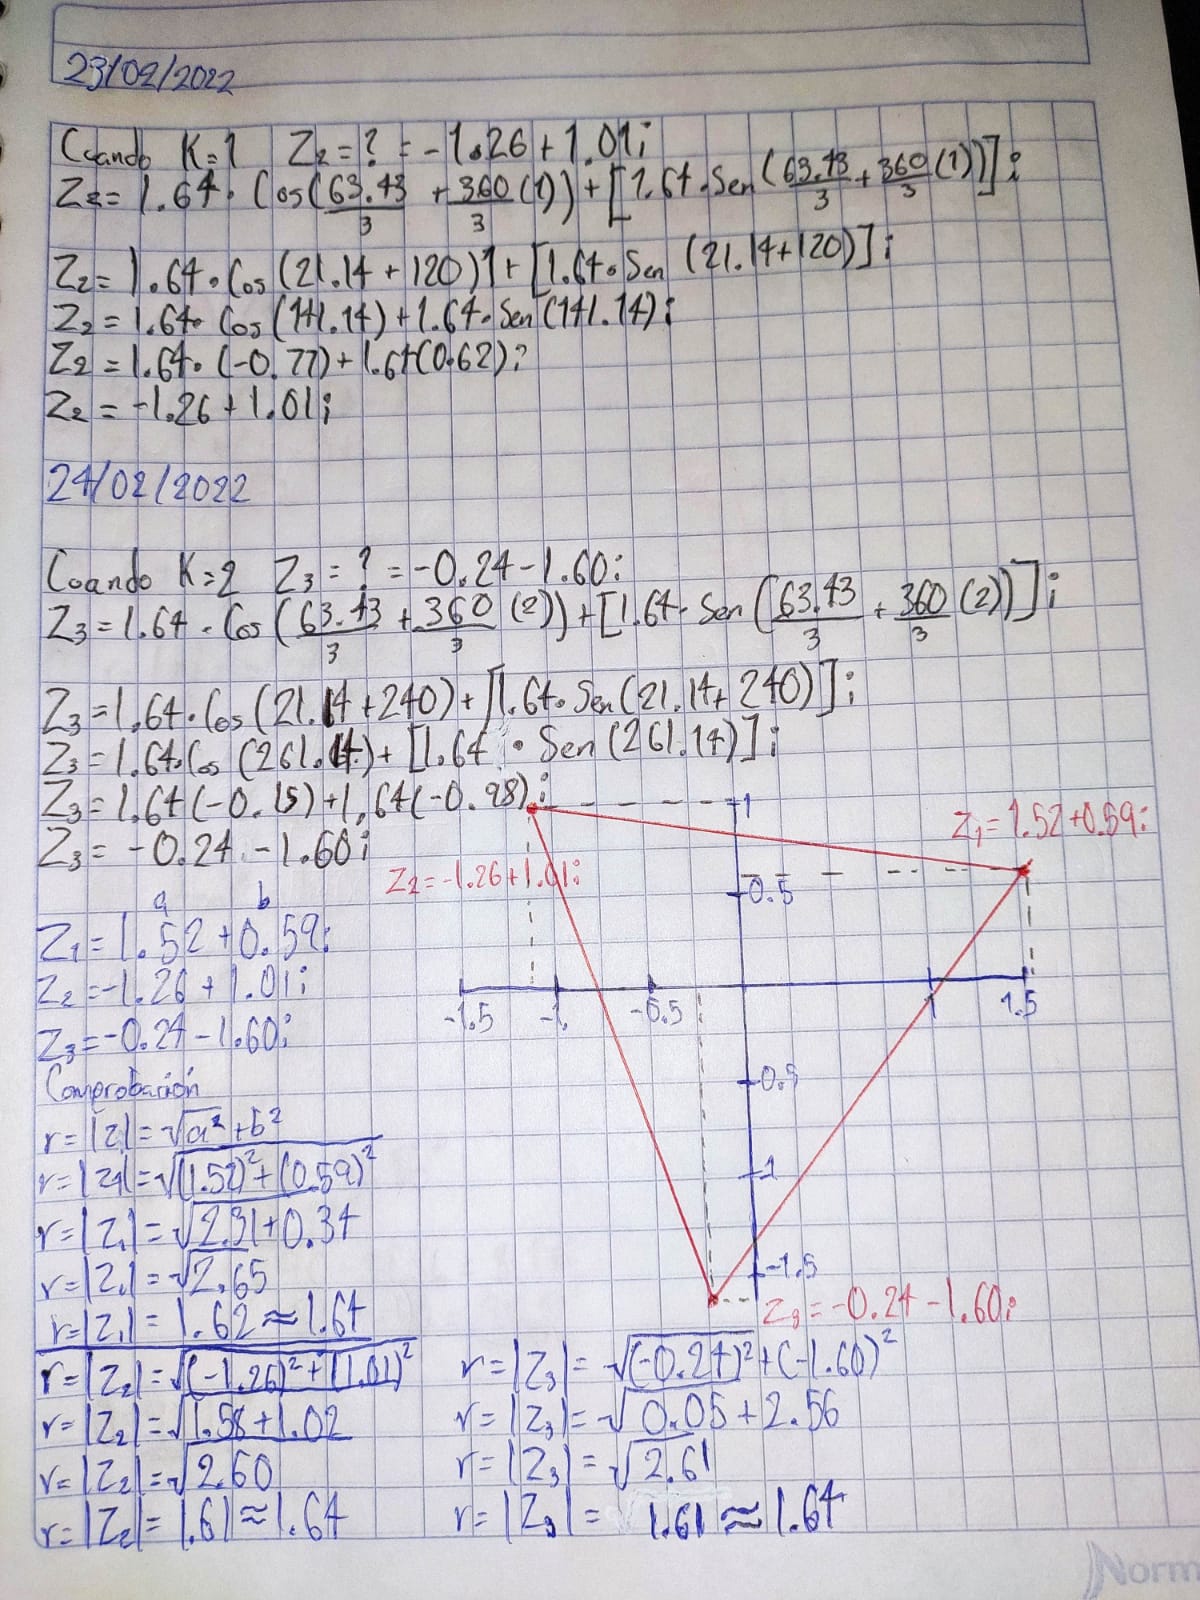 23/02/2022
Cuando K=1 Z2=? = -1.26+1.01i
Z2=1.64·Cos(63.43/3 + 360/3 (1)) + [1.64·Sen(63.43/3 + 360/3 (1))]i
Z2=1.64·Cos(21.14+120)]+[1.64·Sen (21.14+120)]i
Z2=1.64·Cos(141.14)+1.64·Sen(141.14)i
Z2=1.64·(-0.77)+1.64(0.62)i
Z2=-1.26+1.01i
24/02/2022
Cuando K=2 Z3=?=-0.24-1.60i
Z3=1.64·Cos(63.43/3 + 360/3 (2))+[1.64·Sen(63.43/3 + 360/3 (2))]i
Z3=1.64·Cos(21.14+240)+[1.64·Sen(21.14+240)]i
Z3=1.64·Cos(261.14)+[1.64·Sen(261.14)]i
Z3=1.64(-0.15)+1,64(-0.98)i
Z3=-0.24-1.60i
a b
Z1=1.52+0.59i
Z2=-1.26+1.01i
Z3=-0.24-1.60i
Comprobación
r=|z|=√a²+b²
r=|z1|=√(1.52)²+(0.59)²
r=|Z1|=√2.31+0.34
r=|Z1|=√2.65
r=|Z1|=1.62≈1.64
r=|Z2|=√(-1.26)²+(1.01)²
r=|Z2|=√1.58+1.02
r=|Z2|=√2.60
r=|Z2|=1.61≈1.64
1
Z1=1.52+0.59i
Z2=-1.26+1.01i
0.5
-1.5 -1. -0.5 1 1.5
-0.5
-1
-1.5
Z3=-0.24-1.60i
r=|Z3|=√(-0.24)²+(-1.60)²
r=|Z3|=√0.05+2.56
r=|Z3|=√2.61
r=|Z3|=1.61≈1.64
Norm